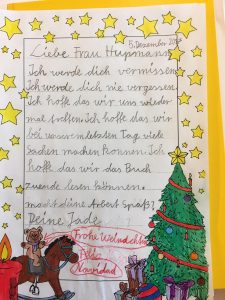 5. Dezember
Liebe Frau Hupmann
Ich werde dich vermissen
Ich werde dich nie vergessen.
Ich hoffe das wir uns wieder
mal treffen. Ich hoffe das wir
bei unserem letzten Tag viele
sachen machen können. Ich
hoffe das wir das Buch
zuende lesen können.
macht deine Arbert Spaß?
Deine Jade
Frohe Weihnachten
Feliz
Navidad